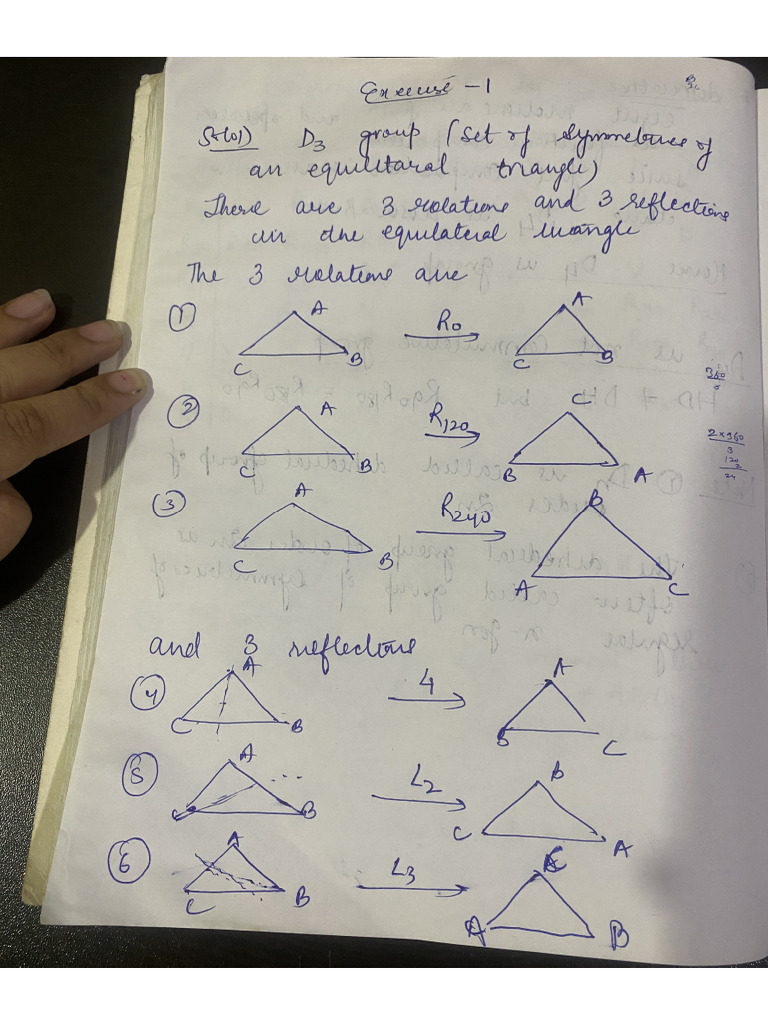 Exercise - 1
Sol01) D3 group (Set of symmetries of
an equilitaral triangle)
There are 3 rotations and 3 reflections
in the equilateral triangle
The 3 rotations are
1 A C B R0 A C B
2 A C B R120 C B A
3 A C B R240 B A C
and 3 reflections
4 A C B L1 A B C
5 A C B L2 B C A
6 A C B L3 C A B
360
2×360
3
120